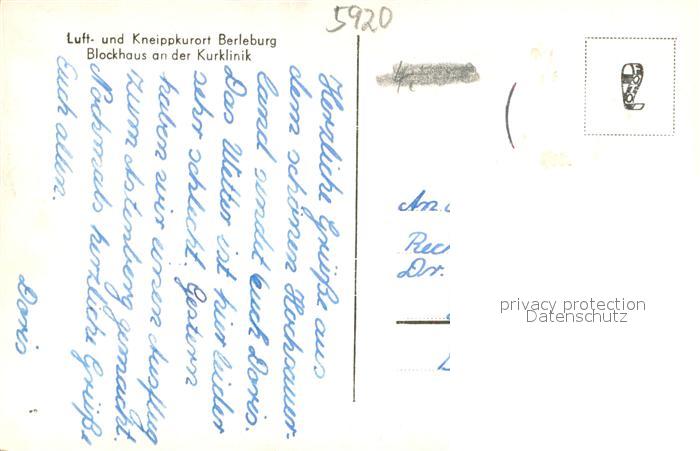 5920
Luft- und Kneippkurort Berleburg
Blockhaus an der Kurklinik
Herzliche Grüße aus
dem schönen Hochsauer-
land sendet Euch Doris.
Das Wetter ist hier leider
sehr schlecht. Gestern
haben wir einen Ausflug
zum Astenberg gemacht.
Nochmals herzliche Grüße
Euch allen.
Doris
An
Dr.
privacy protection
Datenschutz